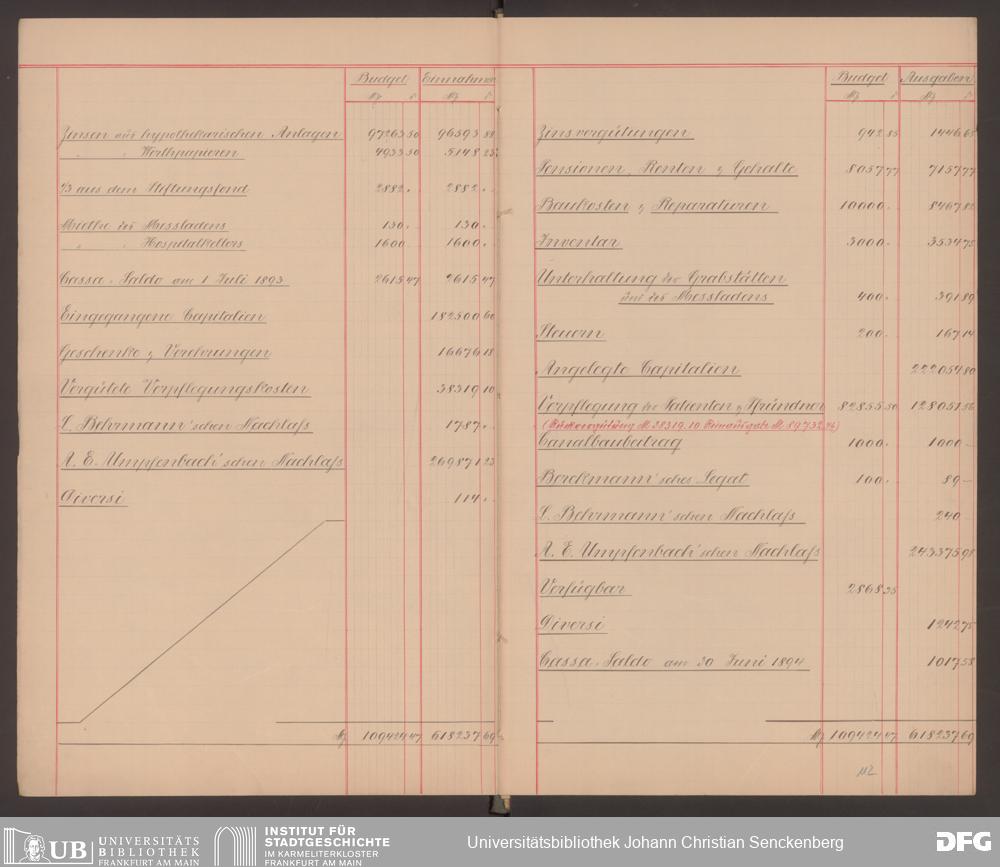 Budget Einnahmen
M. ₰ M. ₰
Zinsen aus hypothekarischen Anlagen 97263 50 96393 88
" " Werthpapieren 4933 50 5148 25
⅓ aus dem Stiftungsfond 2882 . 2882 .
Miethe des Messladens 130 . 130 .
" " Hospitalkellers 1600 1600 .
Cassa-Saldo am 1 Juli 1893 2615 47 2615 47
Eingegangene Capitalien 182500 60
Geschenke & Verehrungen 16676 18
Vergütete Verpflegungskosten 38319 10
L. Behrmann'schen Nachlaß 1787 .
A. E. Umpfenbach'schen Nachlaß 269871 23
Diversi 114 .
M. 109424 47 618237 69
Budget Ausgaben
M. ₰ M. ₰
Zinsvergütungen 942 85 1446 65
Pensionen, Renten & Gehalte 8057 77 7157 77
Baukosten & Reparaturen 10000 . 8467 82
Inventar 3000 . 3534 75
Unterhaltung der Grabstätten
und des Messladens 400 . 391 89
Steuern 200 . 167 14
Angelegte Capitalien 222054 80
Verpflegung der Patienten & Pfründner 82855 50 128051 56
(Rückvergütung M. 38319.10 Reinausgabe M. 89732.46)
Canalbaubeitrag 1000 . 1000 —
Berckmann'sches Legat 100 . 89 —
L. Behrmann'schen Nachlaß 240
A. E. Umpfenbach'schen Nachlaß 243375 98
Verfügbar 2868 35
Diversi 1242 75
Cassa-Saldo am 30 Juni 1894 1017 58
M. 109424 47 618237 69
112
UB UNIVERSITÄTS
BIBLIOTHEK
FRANKFURT AM MAIN
INSTITUT FÜR
STADTGESCHICHTE
IM KARMELITERKLOSTER
FRANKFURT AM MAIN
Universitätsbibliothek Johann Christian Senckenberg
DFG